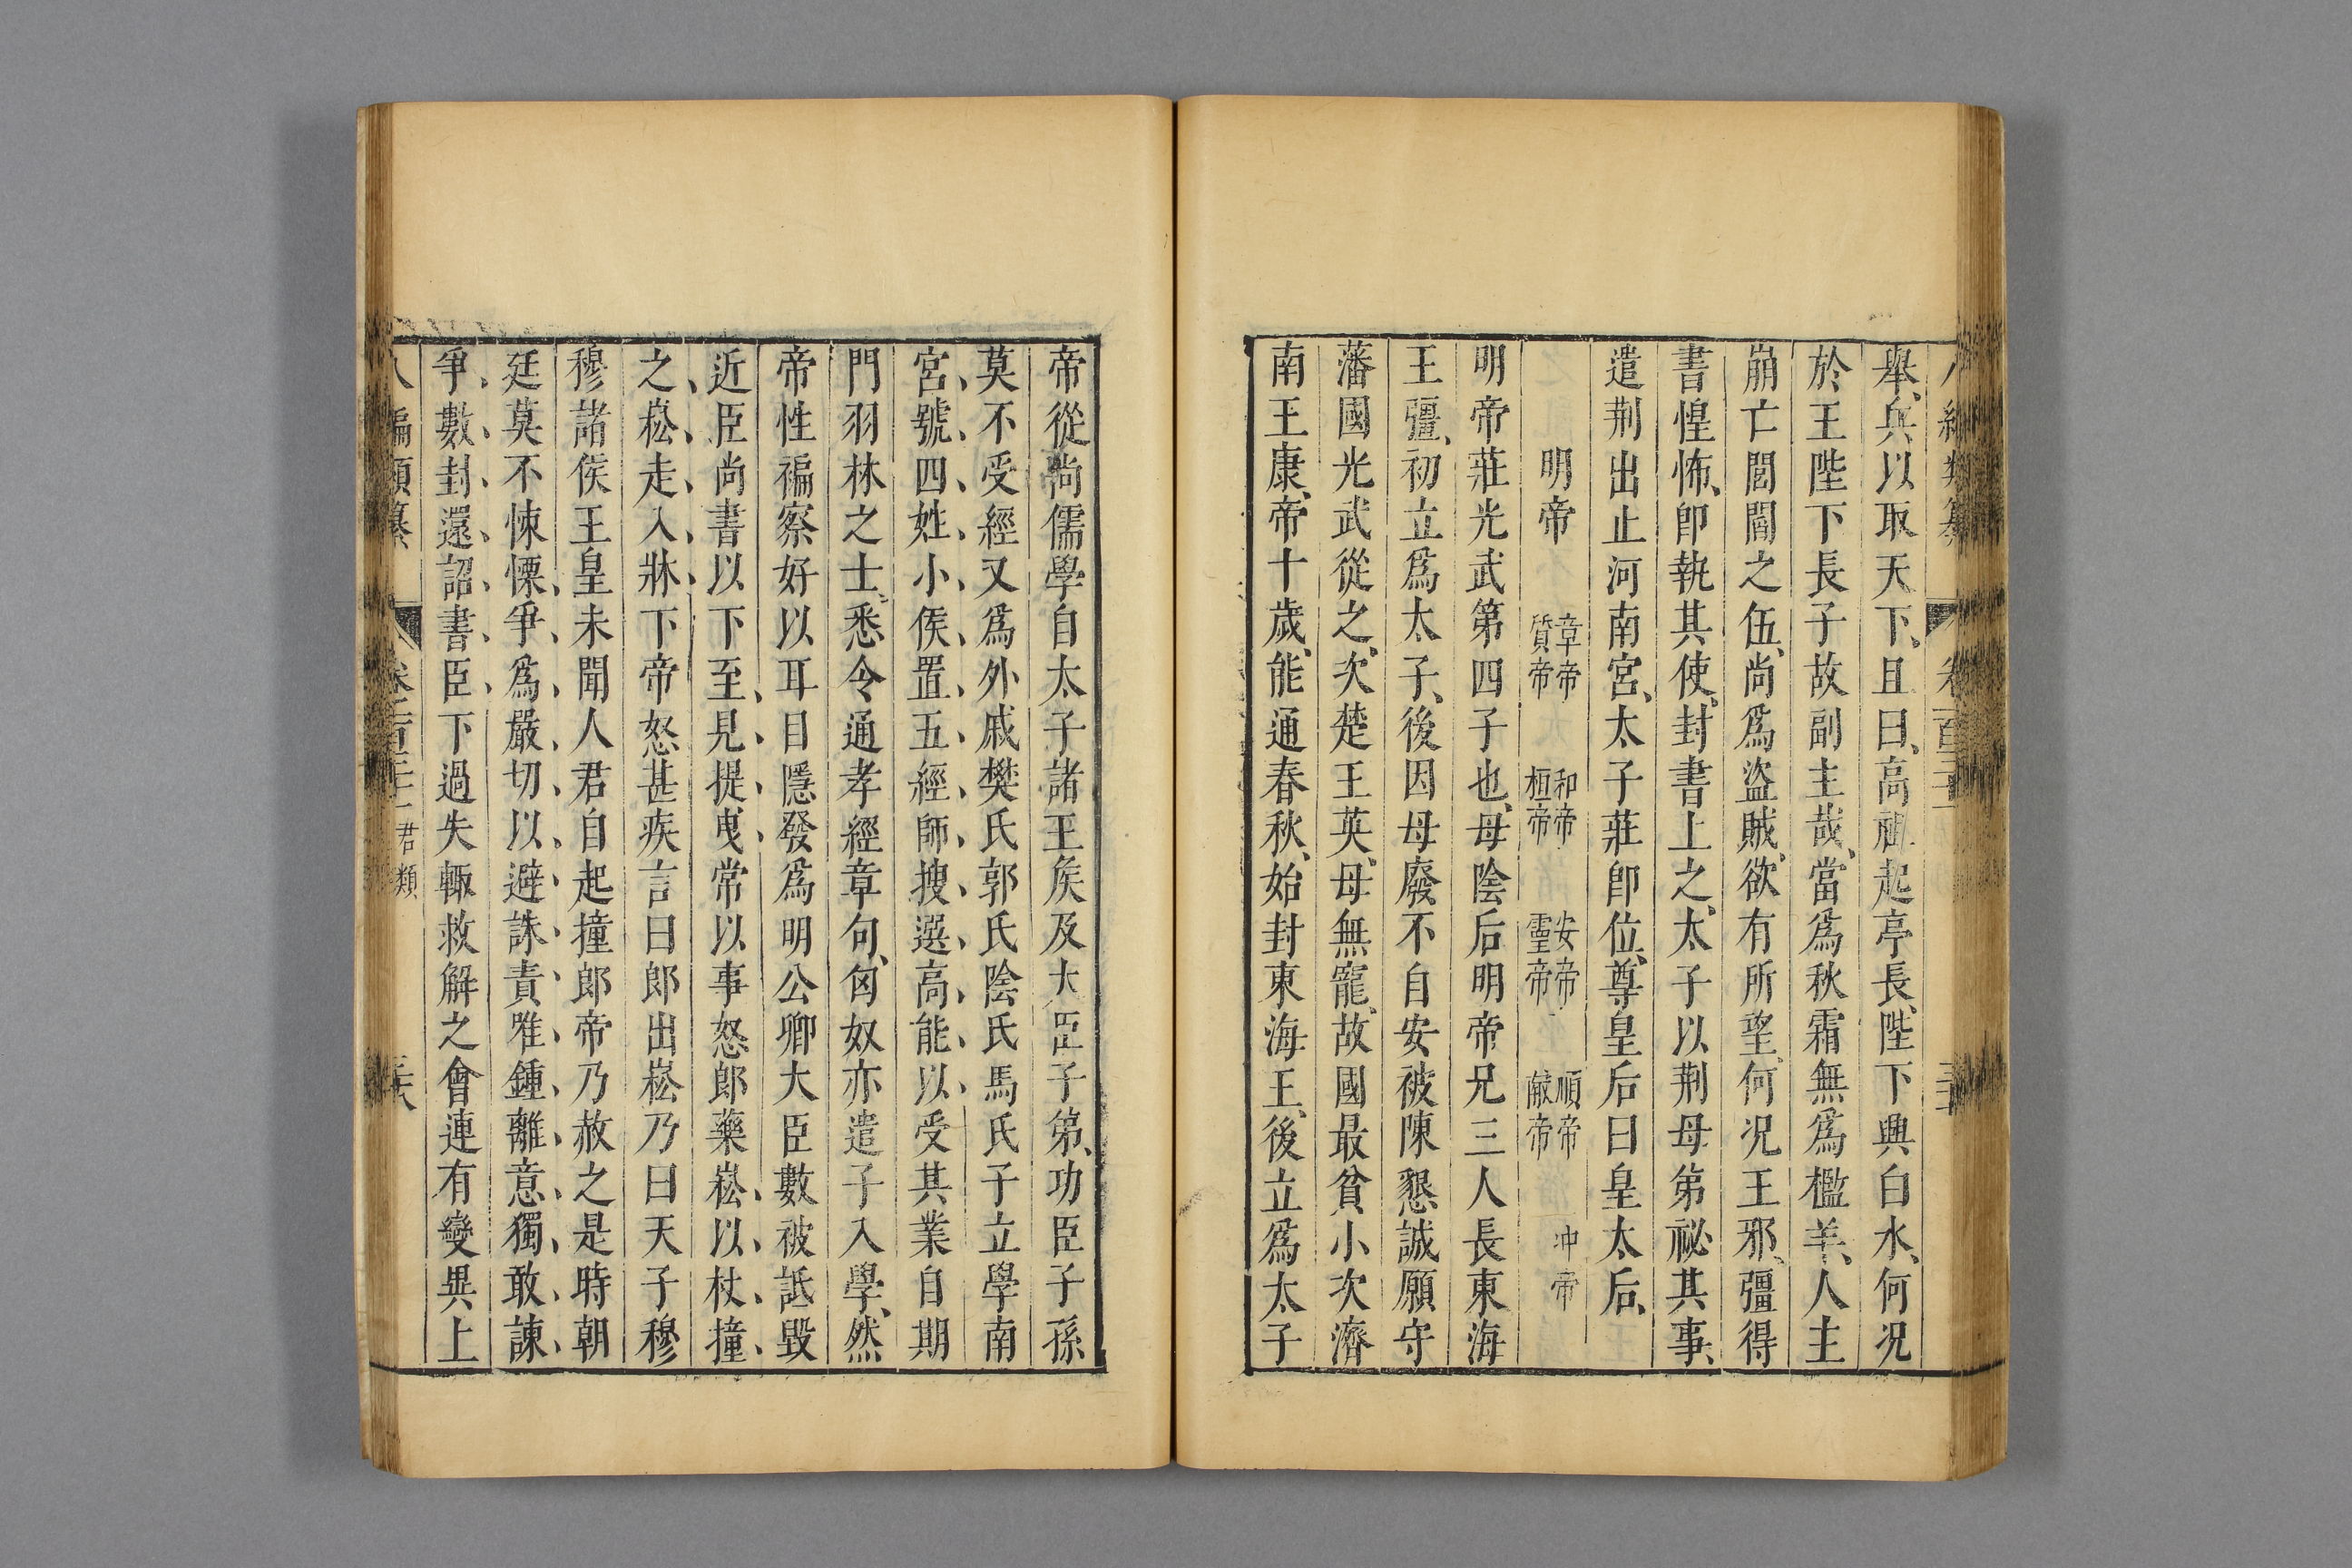 舉兵以取天下且曰高祖起亭長陛下興白水何況
於王陛下長子故副主哉當爲秋霜無爲檻羊人主
崩亡閭閻之伍尚爲盜賊欲有所望何況王邪彊得
書惶怖卽執其使封書上之太子以荆母弟祕其事
遣荆出止河南宮太子莊卽位尊皇后曰皇太后
明帝 章帝 和帝 安帝 順帝 冲帝
質帝 桓帝 靈帝 獻帝
明帝莊光武第四子也母陰后明帝兄三人長東海
王彊初立爲太子後因母廢不自安被陳懇誠願守
藩國光武從之次楚王英母無寵故國最貧小次濟
南王康帝十歲能通春秋始封東海王後立爲太子
帝從尚儒學自太子諸王矦及大臣子弟功臣子孫
莫不受經又爲外戚樊氏郭氏陰氏馬氏子立學南
宮號四姓小侯置五經師搜選高能以受其業自期
門羽林之士悉令通孝經章句匈奴亦遣子入學然
帝性褊察好以耳目隱發爲明公卿大臣數被詆毀
近臣尚書以下至見提曳常以事怒郎藥崧以杖撞
之崧走入牀下帝怒甚疾言曰郎出崧乃曰天子穆
穆諸侯王皇未聞人君自起撞郎帝乃赦之是時朝
廷莫不悚慄爭爲嚴切以避誅責唯鍾離意獨敢諫
爭數封還詔書臣下過失輙救解之會連有變異上
八編類纂 君類